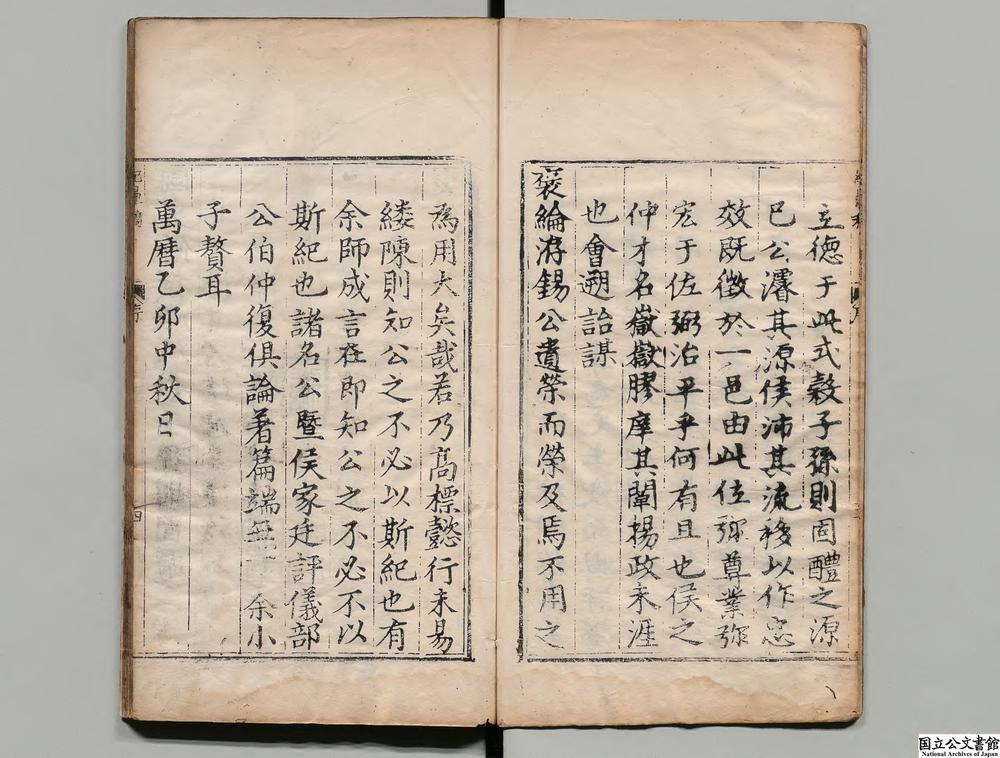 立德于此式穀子孫則固醴之源
已公濬其源侯沛其流移以作忠
效既徵於一邑由此位彌尊業弥
宏于佐弼治平乎何有且也侯之
仲才名嶽嶽膠庠其闡揚政未涯
也會遡詒謀
褒綸洊錫公遺榮而榮及焉不用之
爲用大矣哉若乃高標懿行未易
縷陳則知公之不必以斯紀也有
余師成言在即知公之不必不以
斯紀也諸名公暨侯家廷評儀部
公伯仲復俱論著篇端無 余小
子贅耳
萬曆乙卯中秋日
序
四
国立公文書館
National Archives of Japan